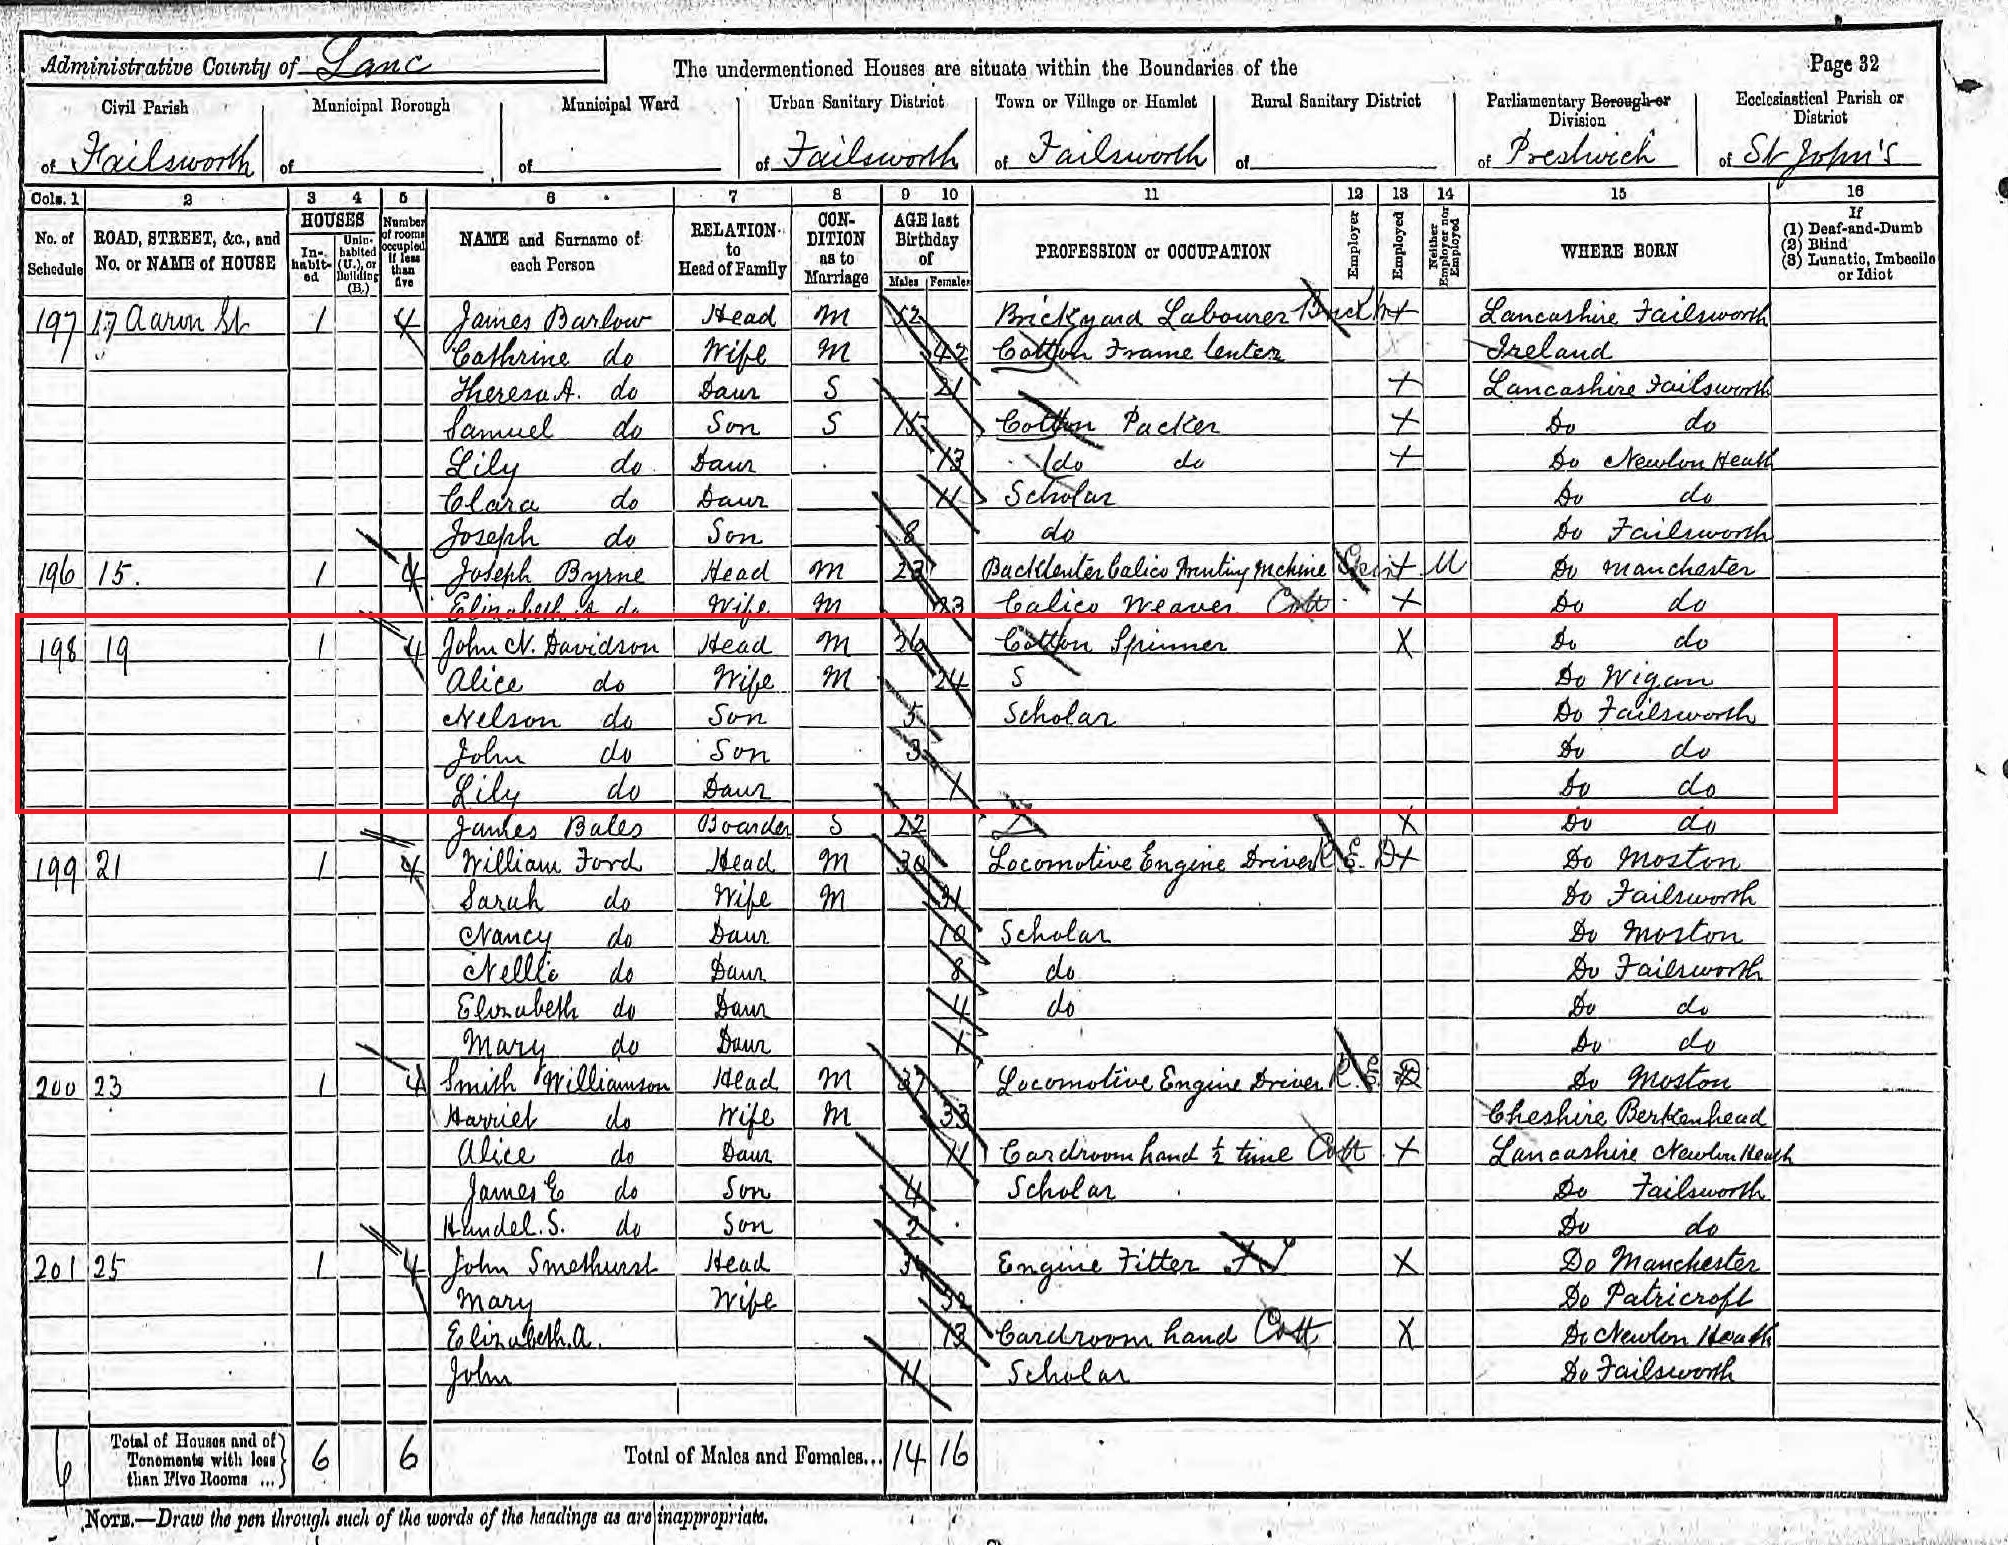 Administrative County of Lanc
The undermentioned Houses are situate within the Boundaries of the
Page 32
Civil Parish of Failsworth
Municipal Borough of
Municipal Ward of
Urban Sanitary District of Failsworth
Town or Village or Hamlet of Failsworth
Rural Sanitary District of
Parliamentary Borough or Division of Prestwich
Ecclesiastical Parish or District of St John's
Cols. 1 2 3 4 5 6 7 8 9 10 11 12 13 14 15 16
No. of Schedule
ROAD, STREET, &c., and No. or NAME of HOUSE
HOUSES
In-habit-ed
Unin-habited (U.), or Building (B.)
Number of rooms occupied if less than five
NAME and Surname of each Person
RELATION to Head of Family
CON-DITION as to Marriage
AGE last Birthday of
Males Females
PROFESSION or OCCUPATION
Employer
Employed
Neither Employer nor Employed
WHERE BORN
If
(1) Deaf-and-Dumb
(2) Blind
(3) Lunatic, Imbecile or Idiot
197 17 Aaron St 1 4 James Barlow Head M 52 Brickyard Labourer Brick + Lancashire Failsworth
Cathrine do Wife M 42 Cotton Frame Tenter Ireland
Theresa A. do Daur S 21 + Lancashire Failsworth
Samuel do Son S 15 Cotton Packer + Do do
Lily do Daur 13 do do + Do Newton Heath
Clara do Daur 11 Scholar Do do
Joseph do Son 8 do Do Failsworth
196 15. 1 4 Joseph Byrne Head M 23 Backtenter Calico Printing Mchine + Do Manchester
Elizabeth A do Wife M 23 Calico Weaver Cott + Do do
198 19 1 4 John N. Davidson Head M 26 Cotton Spinner X Do do
Alice do Wife M 24 S Do Wigan
Nelson do Son 5 Scholar Do Failsworth
John do Son 3 Do do
Lily do Daur 1 Do do
James Bales Boarder S 22 X Do do
199 21 1 4 William Ford Head M 30 Locomotive Engine Driver R E D + Do Moston
Sarah do Wife M 31 Do Failsworth
Nancy do Daur 10 Scholar Do Moston
Nellie do Daur 8 do Do Failsworth
Elizabeth do Daur 4 do Do do
Mary do Daur 1 Do do
200 23 1 4 Smith Williamson Head M 37 Locomotive Engine Driver R. E. D Do Moston
Harriet do Wife M 33 Cheshire Berkenhead
Alice do Daur 11 Cardroom hand ½ time Cott + Lancashire Newton Heath
James E do Son 4 Scholar Do Failsworth
Handel. S. do Son 2 Do do
201 25 1 4 John Smethurst Head Engine Fitter X Do Manchester
Mary Wife 32 Do Patricroft
Elizabeth. A. 13 Cardroom hand Cott X Do Newton Heath
John 11 Scholar Do Failsworth
6 Total of Houses and of Tenements with less than Five Rooms ... 6 6 Total of Males and Females... 14 16
NOTE.—Draw the pen through such of the words of the headings as are inappropriate.